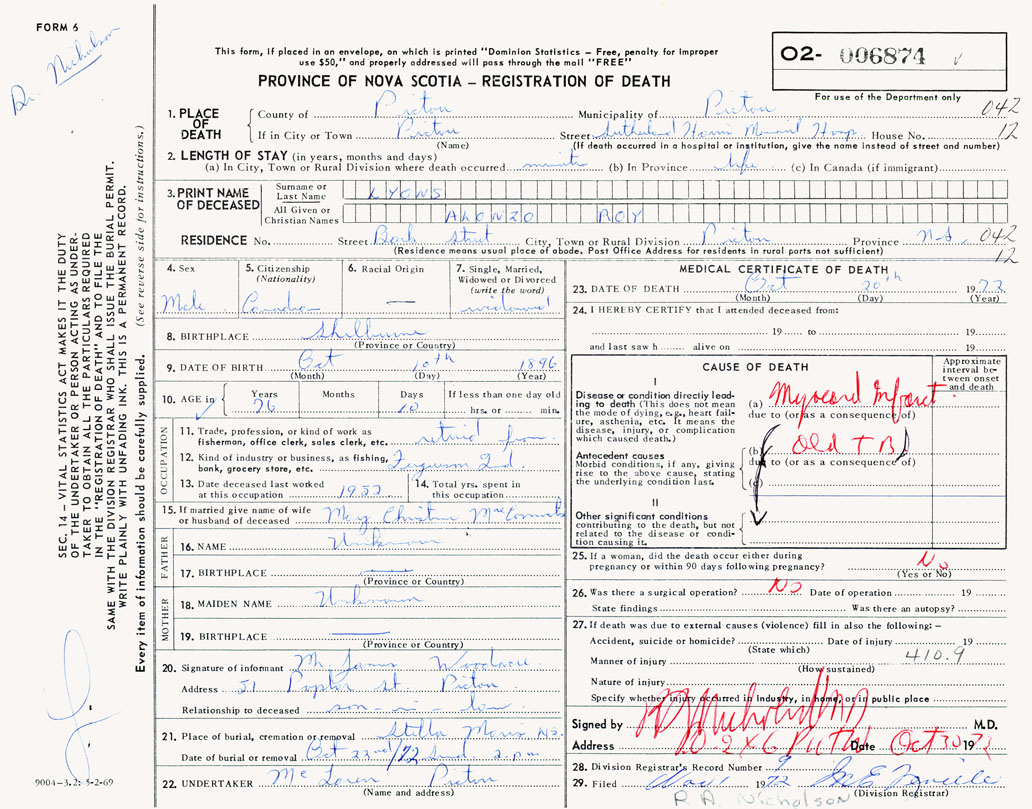 FORM 6
Dr. Nicholson
This form, if placed in an envelope, on which is printed "Dominion Statistics – Free, penalty for improper
use $50," and properly addressed will pass through the mail "FREE"
PROVINCE OF NOVA SCOTIA – REGISTRATION OF DEATH
O2- 006874
For use of the Department only
042
12
1. PLACE OF DEATH
County of Pictou Municipality of Pictou
If in City or Town Pictou Street Sutherland Harris Hosp House No.
(Name) (If death occurred in a hospital or institution, give the name instead of street and number)
2. LENGTH OF STAY (in years, months and days)
(a) In City, Town or Rural Division where death occurred (b) In Province life (c) In Canada (if immigrant)
3. PRINT NAME OF DECEASED
Surname or Last Name LYONS
All Given or Christian Names ALONZO ROY
RESIDENCE No. Street City, Town or Rural Division Pictou Province N.S. 042
(Residence means usual place of abode. Post Office Address for residents in rural parts not sufficient) 12
4. Sex
Male
5. Citizenship
(Nationality)
Canadian
6. Racial Origin
—
7. Single, Married,
Widowed or Divorced
(write the word)
widowed
8. BIRTHPLACE Shelburne
(Province or Country)
9. DATE OF BIRTH Oct 10th 1896
(Month) (Day) (Year)
10. AGE in Years Months Days If less than one day old
76 10 hrs. or min.
OCCUPATION
11. Trade, profession, or kind of work as
fisherman, office clerk, sales clerk, etc. retired from
12. Kind of industry or business, as fishing,
bank, grocery store, etc. Ferguson Ind.
13. Date deceased last worked
at this occupation 1957
14. Total yrs. spent in
this occupation
15. If married give name of wife
or husband of deceased Mary Christine
FATHER
16. NAME Unknown
17. BIRTHPLACE —
(Province or Country)
MOTHER
18. MAIDEN NAME Unknown
19. BIRTHPLACE —
(Province or Country)
20. Signature of informant Mr. James
Address 51 Poplar St. Pictou
Relationship to deceased son-in-law
21. Place of burial, cremation or removal Stella Maris N.S.
Date of burial or removal Oct 22nd/72 2 p.m.
22. UNDERTAKER McLaren Pictou
(Name and address)
MEDICAL CERTIFICATE OF DEATH
23. DATE OF DEATH Oct 20th 1972
(Month) (Day) (Year)
24. I HEREBY CERTIFY that I attended deceased from:
19 to 19
and last saw h alive on 19
CAUSE OF DEATH
Approximate
interval be-
tween onset
and death
I
Disease or condition directly lead-
ing to death (This does not mean
the mode of dying, e.g., heart fail-
ure, asthenia, etc. It means the
disease, injury, or complication
which caused death.)
(a) Myocard Infarct
due to (or as a consequence of)
Antecedent causes
Morbid conditions, if any, giving
rise to the above cause, stating
the underlying condition last.
(b) Old TB
due to (or as a consequence of)
(c)
II
Other significant conditions
contributing to the death, but not
related to the disease or condi-
tion causing it.
25. If a woman, did the death occur either during
pregnancy or within 90 days following pregnancy? No
(Yes or No)
26. Was there a surgical operation? No Date of operation 19
State findings Was there an autopsy?
27. If death was due to external causes (violence) fill in also the following: –
Accident, suicide or homicide? Date of injury 19
(State which)
Manner of injury 410.9
(How sustained)
Nature of injury
Specify whether injury occurred in industry, in home, or in public place
Signed by R A Nicholson MD M.D.
Address Pictou Date Oct 30 1972
28. Division Registrar's Record Number 9
29. Filed Nov 1 1972
(Division Registrar)
R.A. Nicholson
SEC. 14 – VITAL STATISTICS ACT MAKES IT THE DUTY
OF THE UNDERTAKER OR PERSON ACTING AS UNDER-
TAKER TO OBTAIN ALL THE PARTICULARS REQUIRED
IN THE "REGISTRATION OF DEATH" AND TO FILE THE
SAME WITH THE DIVISION REGISTRAR WHO SHALL ISSUE THE BURIAL PERMIT.
WRITE PLAINLY WITH UNFADING INK. THIS IS A PERMANENT RECORD.
Every item of information should be carefully supplied. (See reverse side for instructions.)
9004-3.2: 5-2-69